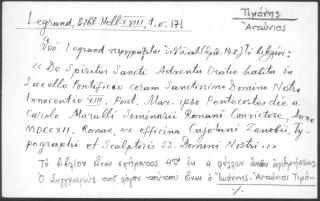 Legrand, Bibl. Hell. XVIII, 1, σ. 171
Τιμόνης
Ἀντώνιος
Ὑπὸ Legrand περιγράφεται (ἀριθ. 142) τὸ βιβλίον:
« De Spiritus Sancti Adventu Oratio habita in
Sacello Pontificio coram Sanctissimo Domino Nostro
Innocentio XIII. Pont. Max. ipso Pentecostes die a
Carolo Marulli Seminarii Romani Convictore, Anno
MDCCXII. Romae, ex officina Cajetani Zenobii, Ty-
pographi et Scalptoris SS. Domini Nostri ».
Τὸ βιβλίον εἶναι σχήματος 4ον ἐκ 4 φύλλων ἄνευ ἀριθμήσεως.
Ὁ συγγραφεὺς τοῦ λόγου τούτου εἶναι ὁ Ἰωάννης-Ἀντώνιος Τιμό-
·/.